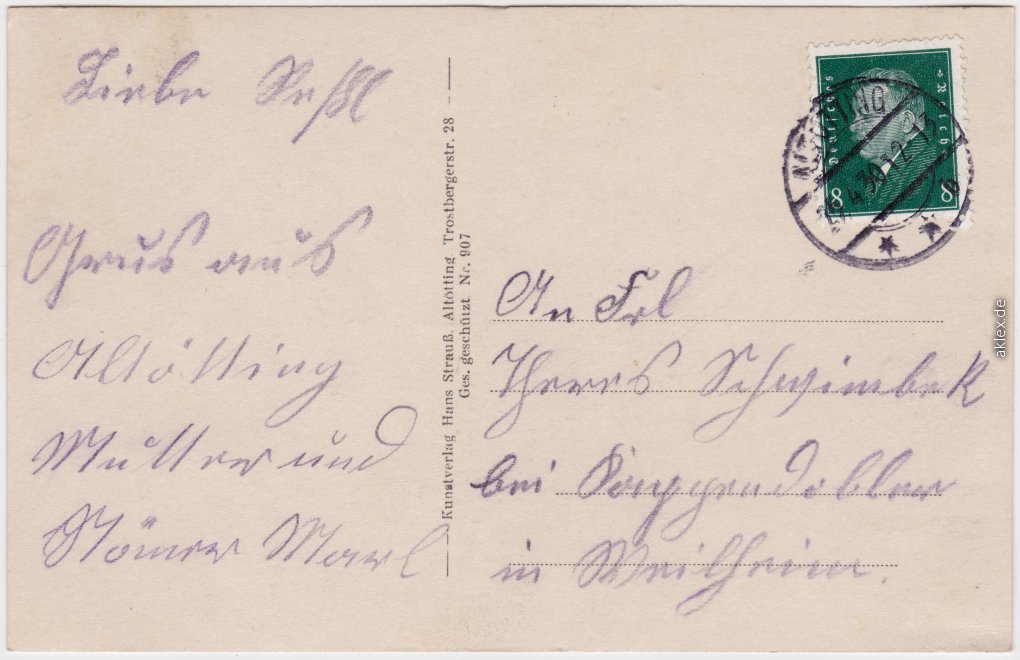 Liebe Reßl
Grus aus
Altötting
Mutter und
Marl
Kunstverlag Hans Strauß, Altötting Trostbergerstr. 28
Ges. geschützt Nr. 907
Deutsches Reich
8 8
ALTÖTTING
4.30.12-13
* * b
An Frl
Theres Schwimbek
bei
in Weilheim.
aklex.de